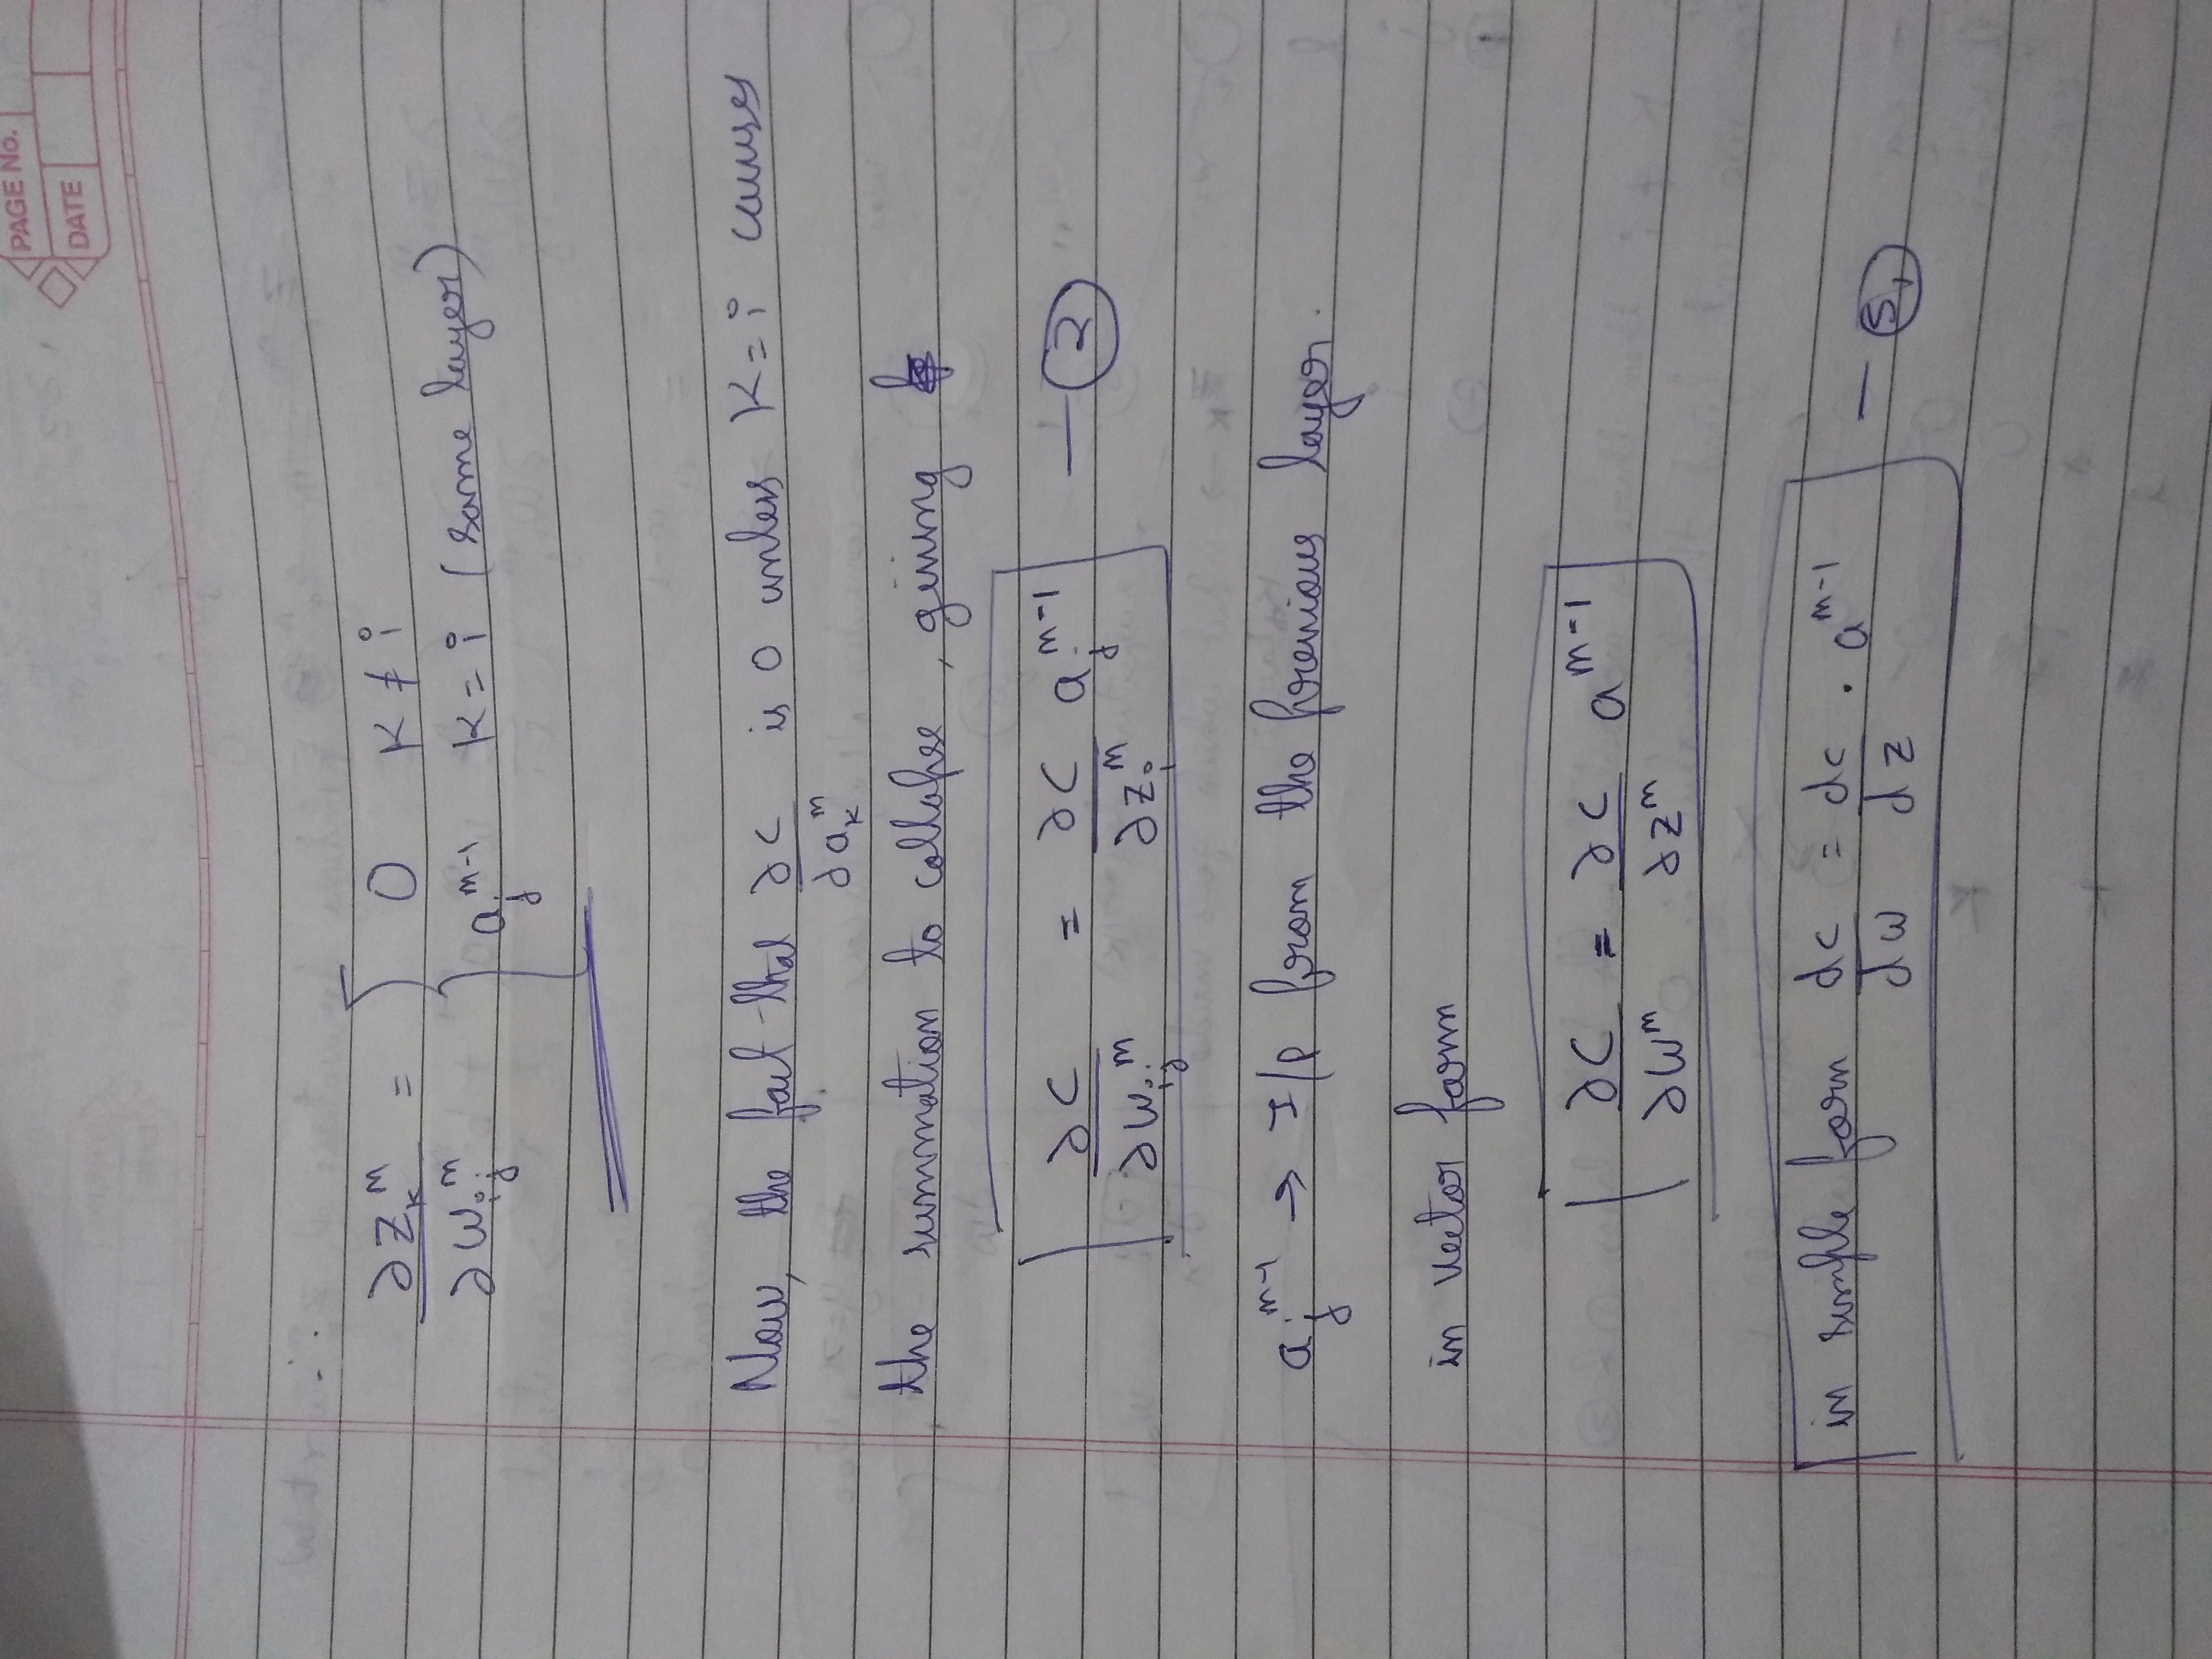 PAGE NO.
DATE
∴ ∂z_k^m / ∂w_ij^m = { 0 K ≠ i
a_j^{m-1} K = i (same layer)
Now, the fact that ∂C / ∂a_k^m is 0 unless K = i causes
the summation to collapse, giving
∂C / ∂w_ij^m = ∂C / ∂z_i^m a_j^{m-1} — ②
a_j^{m-1} → I/P from the previous layer.
in vector form
∂C / ∂W^m = ∂C / ∂z^m a^{m-1}
in simple form dc / dw = dc / dz . a^{m-1} —